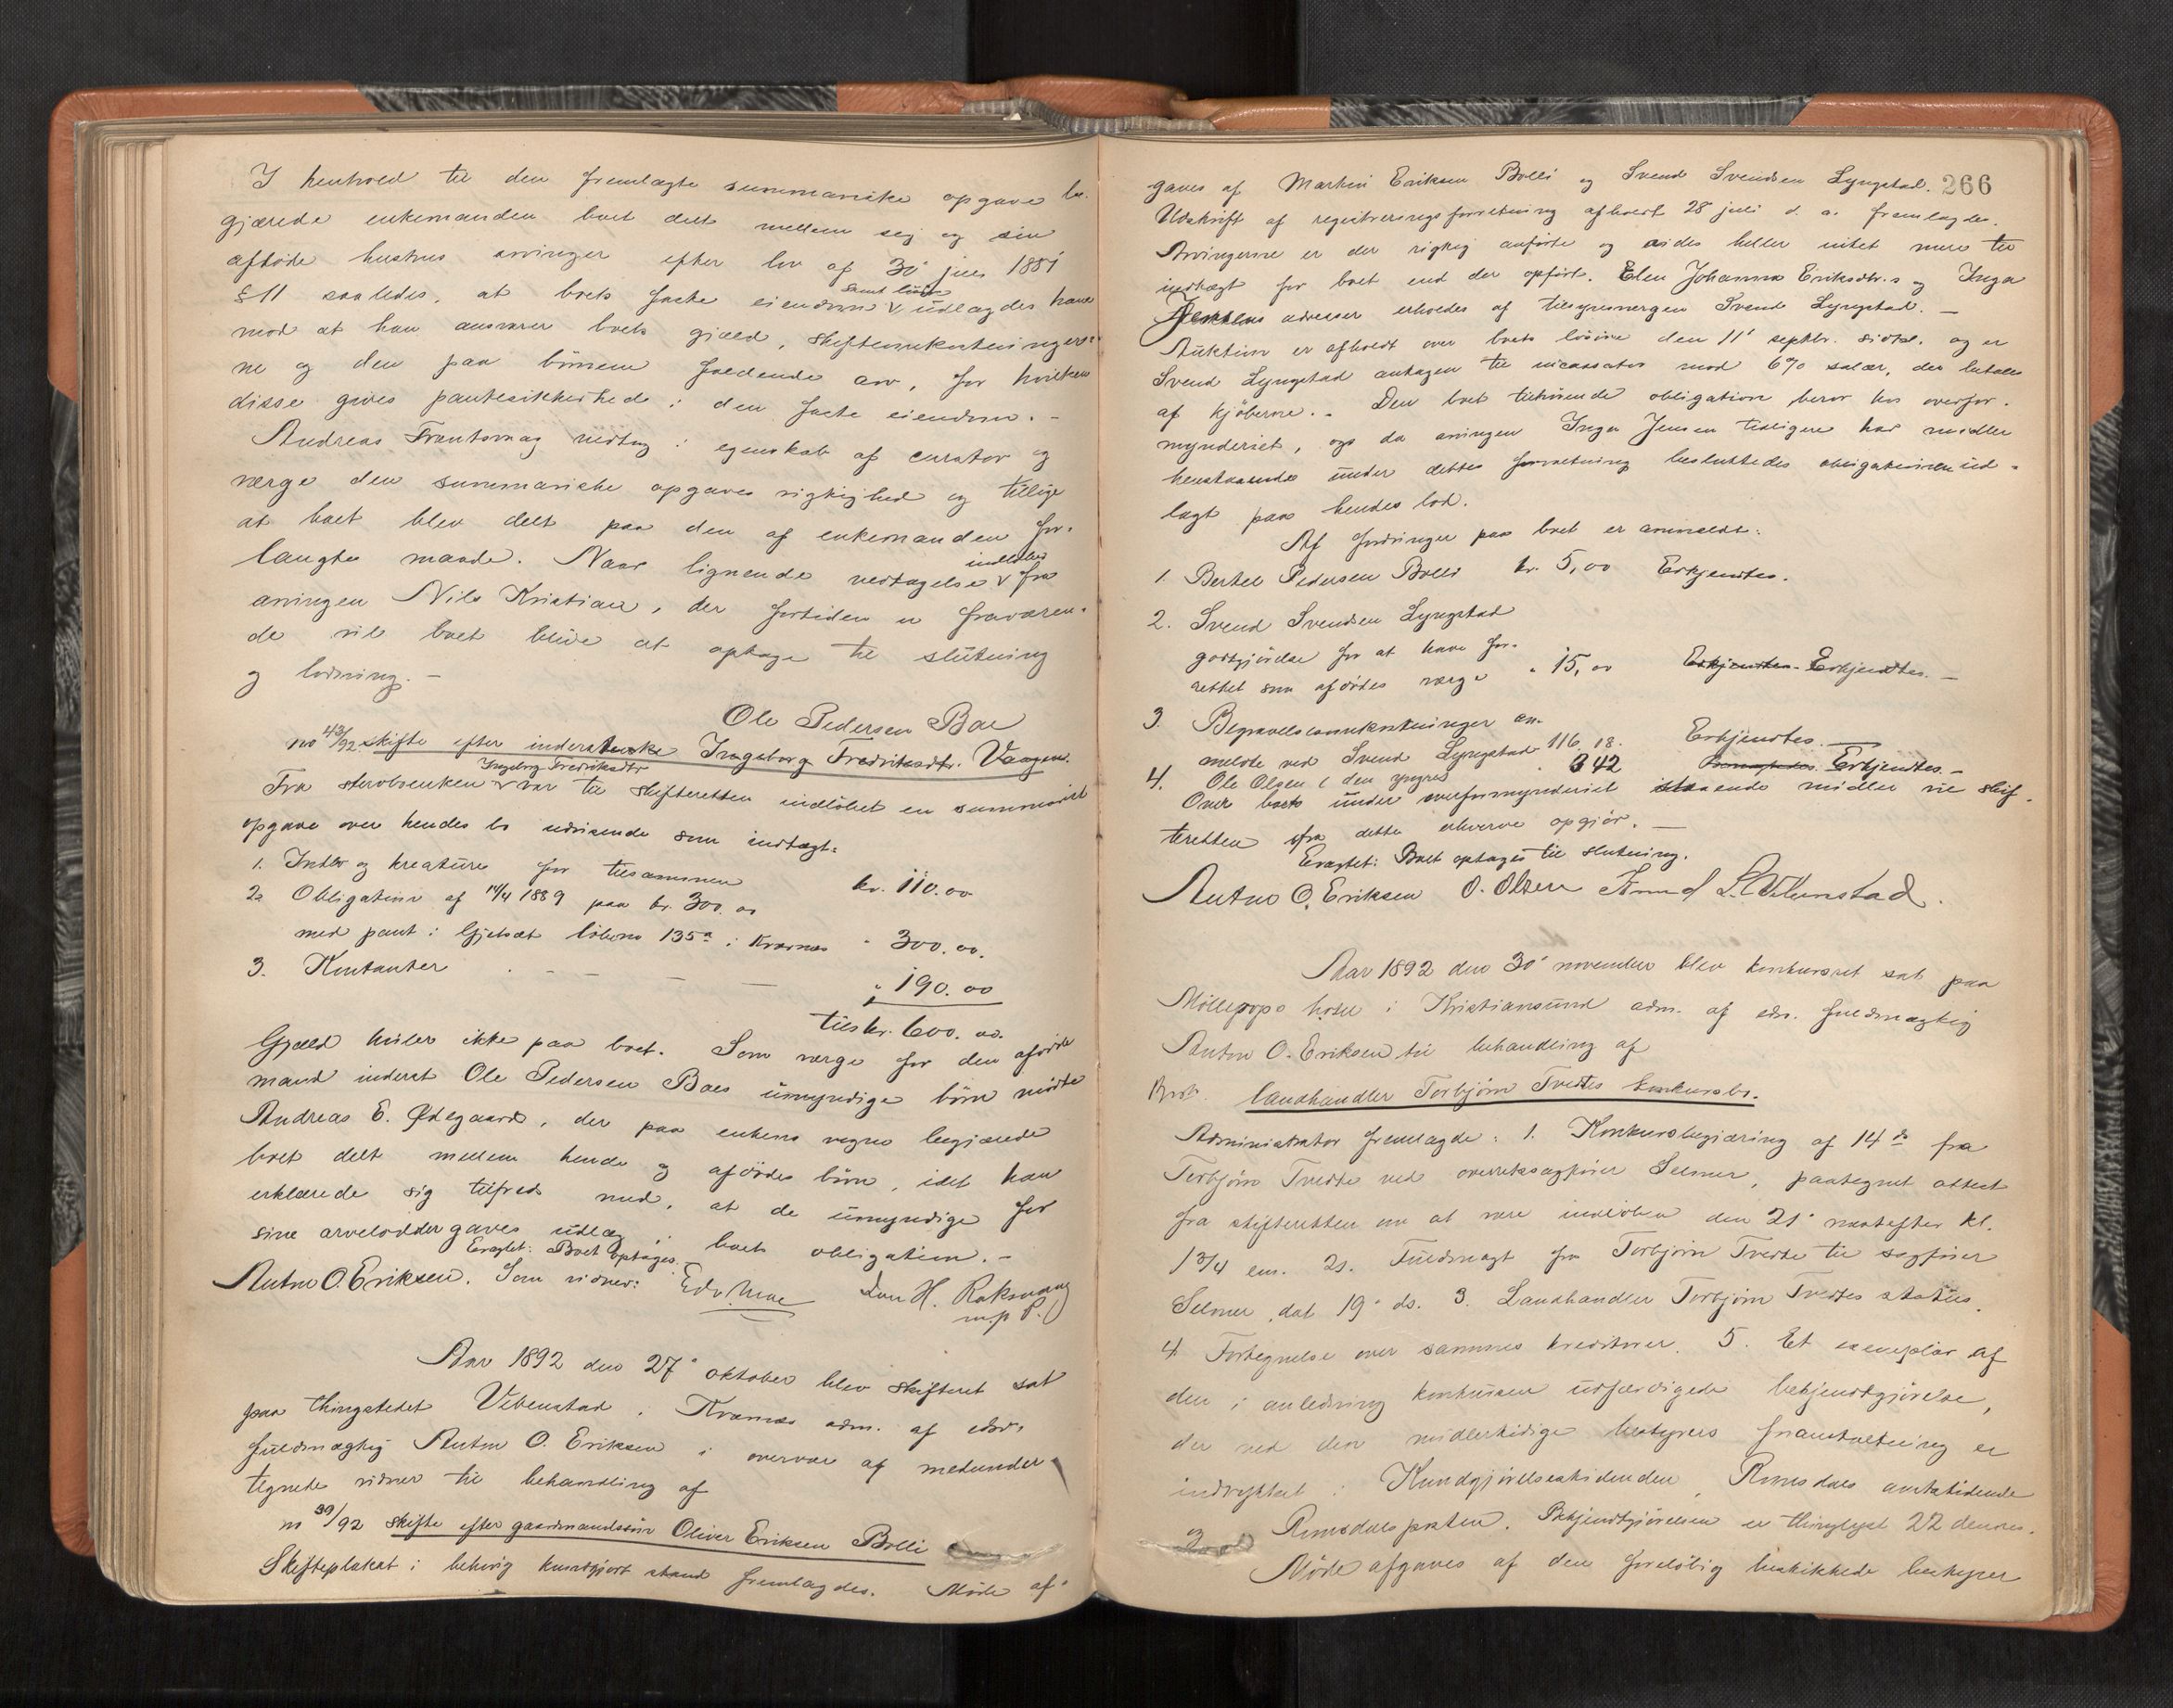 I henhold til den fremlagte summariske opgave be-
gjærede enkemanden boet delt mellem sig og sin
afdøde hustrus arvinger efter lov af 30' juli 1851
§ 11 saaledes, at boets faste eiendom samt løsøre udlagdes ham
mod at han ansvarer boets gjæld, skifteomkostninger-
ne og den paa børnene faldende arv, for hvilken
disse gives pantesikkerhed i den faste eiendom. -
Andreas Frantsvaag vedtog i egenskab af curator og
værge den summariske opgaves rigtighed og tillige
at boet blev delt paa den af enkemanden for-
langte maade. Naar lignende vedtagelse indløber fra
arvingen Nils Kristian, der fortiden er fraværen-
de vil boet blive at optage til slutning
og lodning. -
Ole Pedersen Boe
no 43/92 skifte efter inderst enke Ingeborg Fredriksdtr. Vaagen.
Fra sterboenken Ingeborg Fredriksdtr var til skifteretten indløbet en summarisk
opgave over hendes bo udvisende som indtægt:
1. Indbo og kreature for tilsammen kr. 110.00
2. Obligation af 14/4 1889 paa kr. 300.00
med pant i Gjelsæt løbeno 135a i Kvernes " 300.00.
3. Kontanter . - - - - " 190.00
tils kr. 600.00.
Gjæld hviler ikke paa boet. Som værge for den afdøde
mand inderst Ole Pedersen Boes umyndige børn mødte
Andreas E. Ødegaard, der paa enkens vegne begjærede
boet delt mellem hende og afdødes børn, idet han
erklærede sig tilfreds med, at de umyndige for
sine arvelodder gaves udlæg i boets obligation. -
Eragtet: Boet optages.
Anton O. Eriksen. Som vidner: Edv. Moe Lars H. Roksvaag
m. p. P.
Aar 1892 den 27' oktober blev skifteret sat
paa thingstedet Vebenstad i Kvernes adm. af edsv.
fuldmægtig Anton O. Eriksen i overvær af medunder-
tegnede vidner til behandling af
no 39/92 skifte efter gaardmandssøn Oliver Eriksen Bolli
Skifteplakat i behørig kundgjort stand fremlagdes. Møde af-
266
gaves af Martin Eriksen Bolli og Svend Svendsen Lyngstad.
Udskrift af registreringsforretning afholdt 28' juli d. a. fremlagdes.
Arvingerne er der rigtig anførte og vides heller intet mere til
indtægt for boet end der opført. Elen Johanna Eriksdtr.s og Inga
Jensens adresser erholdes af tilsynsværgen Svend Lyngstad. -
Auktion er afholdt over boets løsøre den 11' septbr. sidstl. og er
Svend Lyngstad antagen til incassator mod 6% salær, der betales
af kjøberne. - Den boet tilhørende obligation beror hos overfor-
mynderiet, og da arvingen Inga Jensen tidligere har midler
henstaaende under dettes forvaltning besluttedes obligationen ud-
lagt paa hendes lod.
Af fordringer paa boet er anmeldt:
1. Bertel Pedersen Bolli kr. 5,00 Erkjendtes.
2. Svend Svendsen Lyngstad
godtgjørelse for at have for-
rettet som afdødes værge " 15,00 Erkjendtes. -
3. Begravelsesomkostninger an-
meldte ved Svend Lyngstad 116.18. Erkjendtes.
4. Ole Olsen (den yngre " 3 42 Erkjendtes. -
Over boets under overformynderiet staaende midler vil skif-
teretten fra dette erhverve opgjør. -
Eragtet: Boet optages til slutning.
Anton O. Eriksen O. Olsen Amund L. Vebenstad.
Aar 1892 den 30' november blev konkursret sat paa
Møllerops hotel i Kristiansund adm. af edsv. fuldmægtig
Anton O. Eriksen til behandling af
landhandler Torbjørn Tvedtes konkursbo.
Administrator fremlagde: 1. Konkursbegjæring af 14 ds fra
Torbjørn Tvedte ved overretssagfører Selmer, paategnet attest
fra skifteretten om at være indløben den 21' næstefter kl.
1 3/4 em. 2. Fuldmagt fra Torbjørn Tvedte til sagfører
Selmer, dat 19' ds. 3. Landhandler Torbjørn Tvedtes status.
4. Fortegnelse over sammes kreditorer. 5. Et exemplar af
den i anledning konkursen udfærdigede bekjendtgjørelse,
der ved den midlertidige bestyrers foranstaltning er
indrykket i Kundgjørelsestidenden, Romsdals amtstidende
og Romsdalsposten. Bekjendtgjørelsen er thinglyst 22 dennes.
Møde afgaves af den foreløbig beskikkede bestyrer